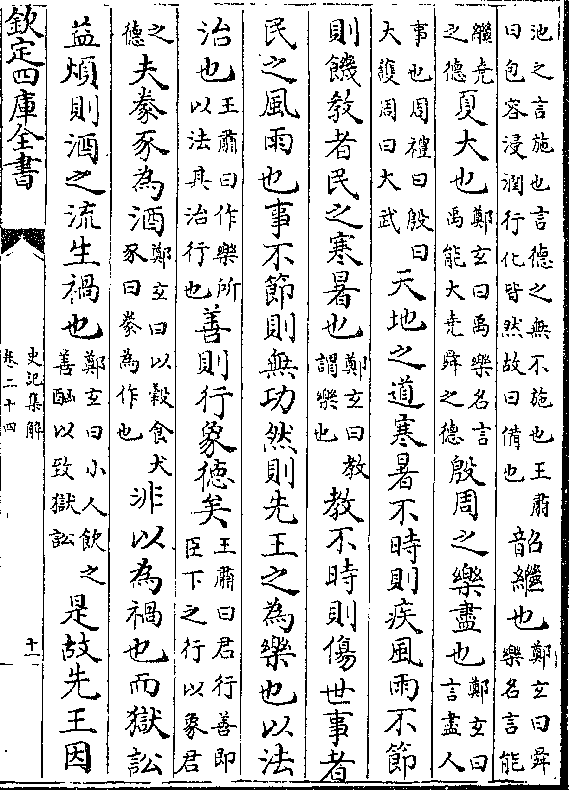 池之言施也言德之無不施也王肅曰包容浸潤行化皆然故曰備也韶繼也鄭玄曰舜樂名言能
繼堯之德夏大也鄭玄曰禹樂名言禹能大堯舜之德殷周之樂盡也鄭玄曰言盡人
事也周禮曰殷曰大護周曰大武天地之道寒暑不時則疾風雨不節
則饑教者民之寒暑也鄭玄曰教謂樂也教不時則傷世事者
民之風雨也事不節則無功然則先王之為樂也以法
治也王肅曰作樂所以法其治行也善則行象德矣王肅曰君行善即臣下之行以象君
之德夫豢豕為酒鄭玄曰以穀食犬豕曰豢為作也非以為禍也而獄訟
益煩則酒之流生禍也鄭玄曰小人飲之善酗以致獄訟是故先王因
欽定四庫全書
史記集解
卷二十四
十